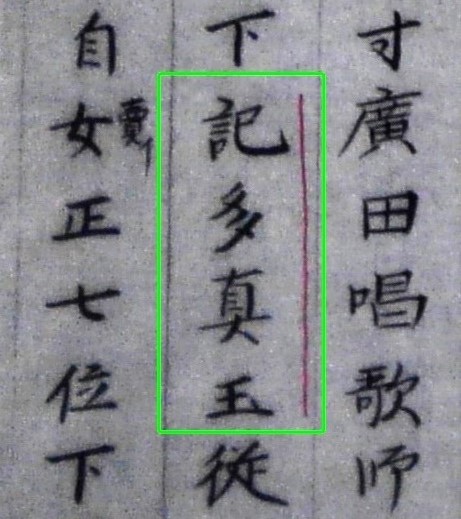 寸廣田唱歌师
下記多真玉従
自女賣正七位下